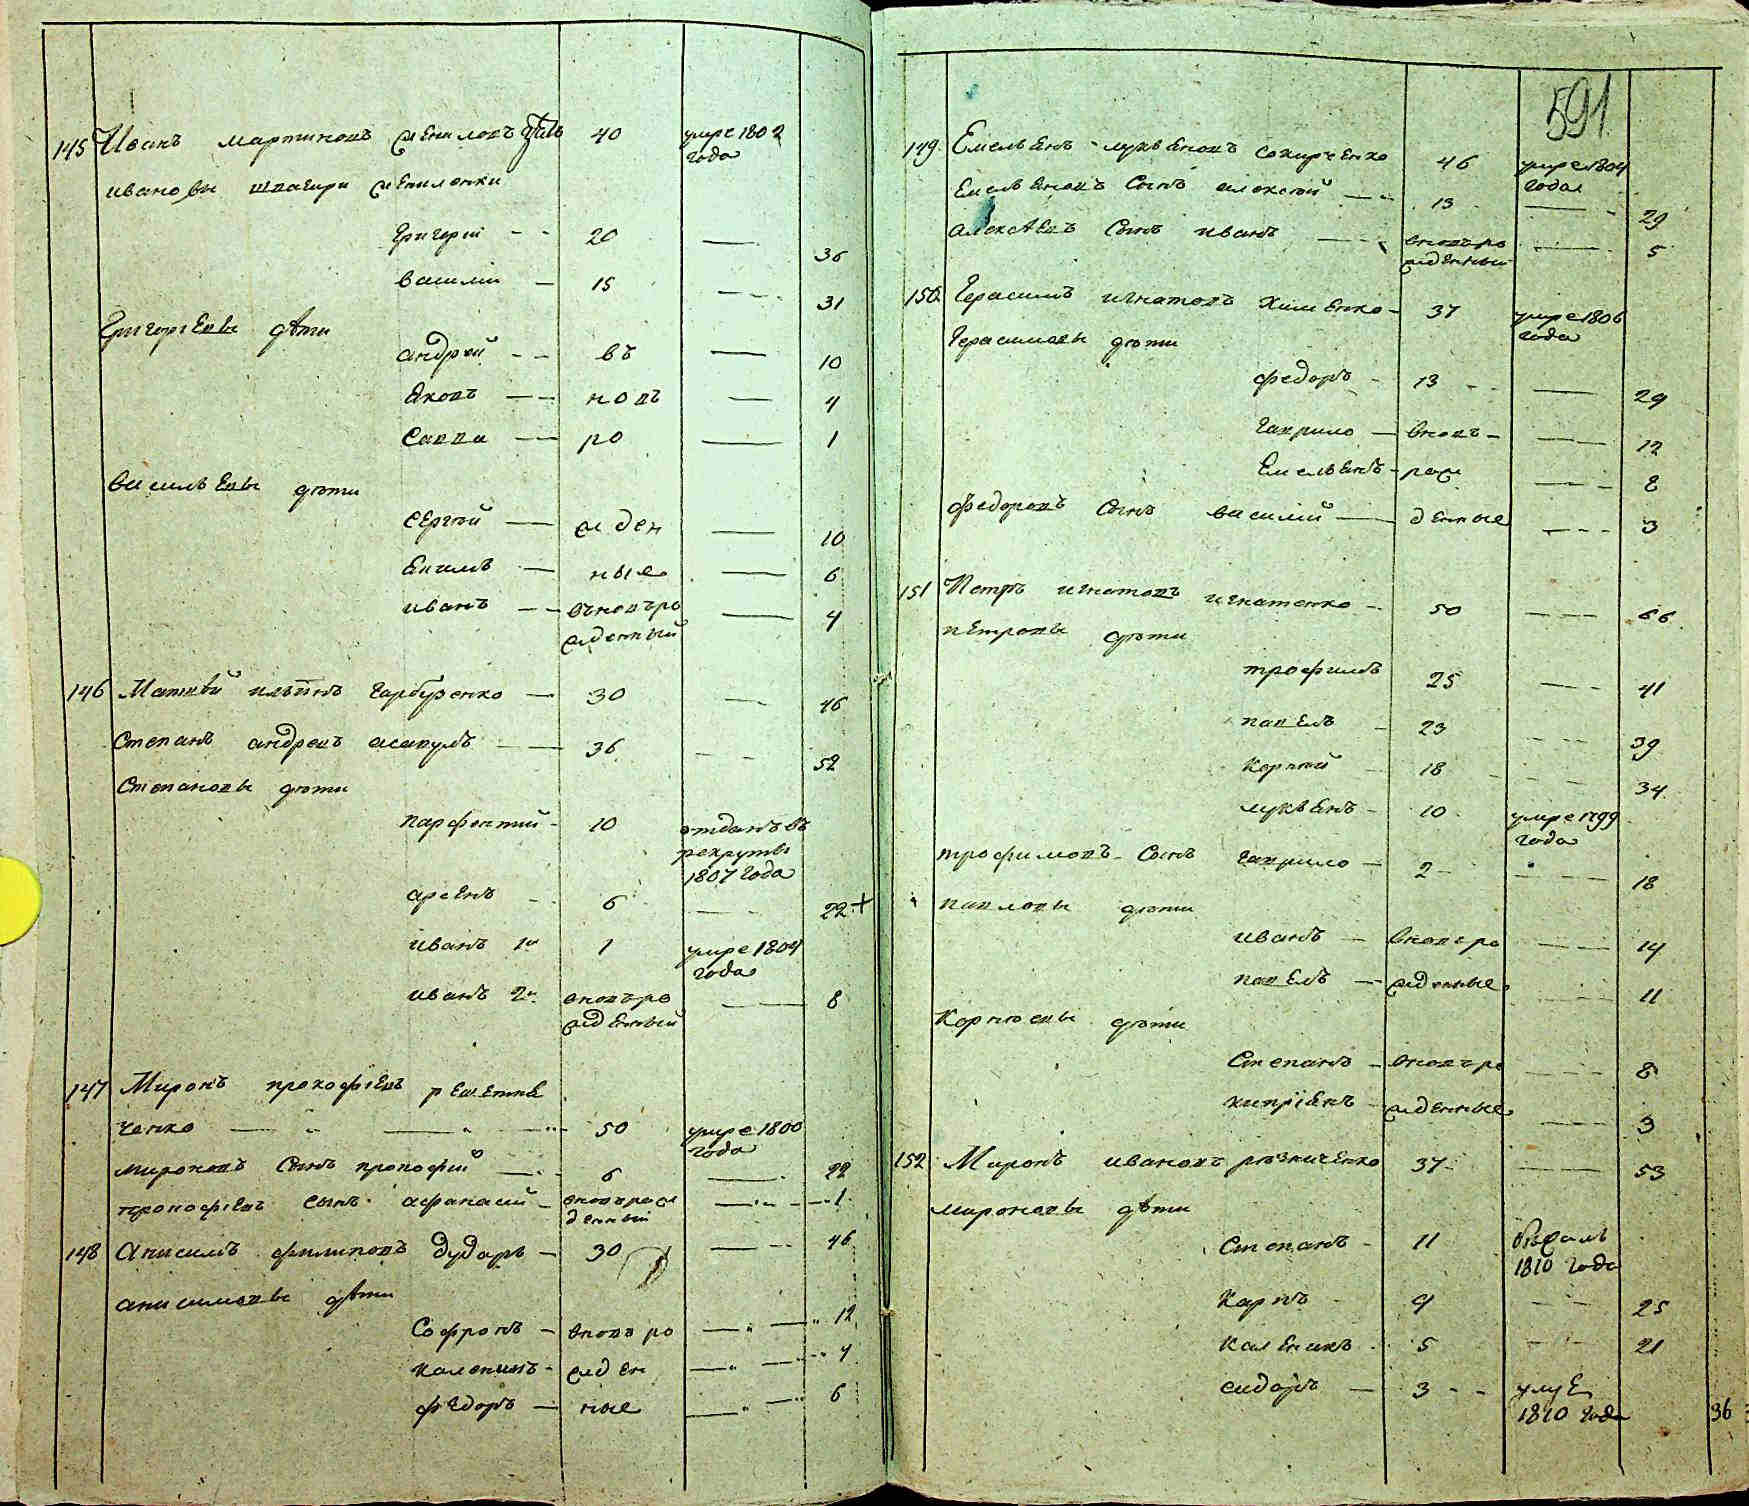 145 Иванъ мартиновъ 40 умре 1802
года
ивановы швагири
григорій 20 36
василій 15 31
григорiевы дѣти
андрей въ 10
яковъ новъ 4
савва ро 1
васильевы дѣти
сергѣй жден 10
екимъ ные 6
иванъ вновъро 4
жденный
146 Матвѣй ильинъ гарбузенко 30 46
Степанъ андреевъ асаулъ 36 52
Степановы дѣти
парфентий 10 отданъ въ
рекруты
1807 года
арсенъ 6 22 +
иванъ 1й 1 умре 1804
года
иванъ 2й вновъро 8
жденный
147 Миронъ прокофiевъ решетнѣ
ченко 50 умре 1800
года
мироновъ сынъ прокофий 6 22
прокофiевъ сынъ афанасий вновърож 1
денный
148 Анисимъ филиповъ дударь 30 46
анисимовы дѣти
Софронъ вновъ ро 12
каленикъ жден 4
федоръ ные 6
591
149 Емельянъ лукьяновъ сокиренко 46 умре 1804
года
Емельяновъ сынъ алексѣй 13 29
алексѣевъ сынъ иванъ вновъро 5
жденный
150 Герасимъ игнатовъ хименко 37 умре 1806
года
герасимовы дѣти
федоръ 13 29
гаврило вновъ 12
Емельянъ рож 8
федоровъ сынъ василий денные 3
151 Петръ игнатовъ игнатенко 50 66
петровы дѣти
трофимъ 25 41
павелъ 23 39
корнѣй 18 34
лукьянъ 10 умре 1799
года
трофимовъ сынъ гаврило 2 18
павловы дѣти
иванъ вновъро 14
павелъ жденные 11
корнѣевы дѣти
Степанъ вновъро 8
кипрiянъ жденные 3
152 Миронъ ивановъ рѣзниченко 37 53
мироновы дѣти
Степанъ 11 бѣжалъ
1810 года
карпъ 9 25
каленикъ 5 21
сидоръ 3
1810 года
36